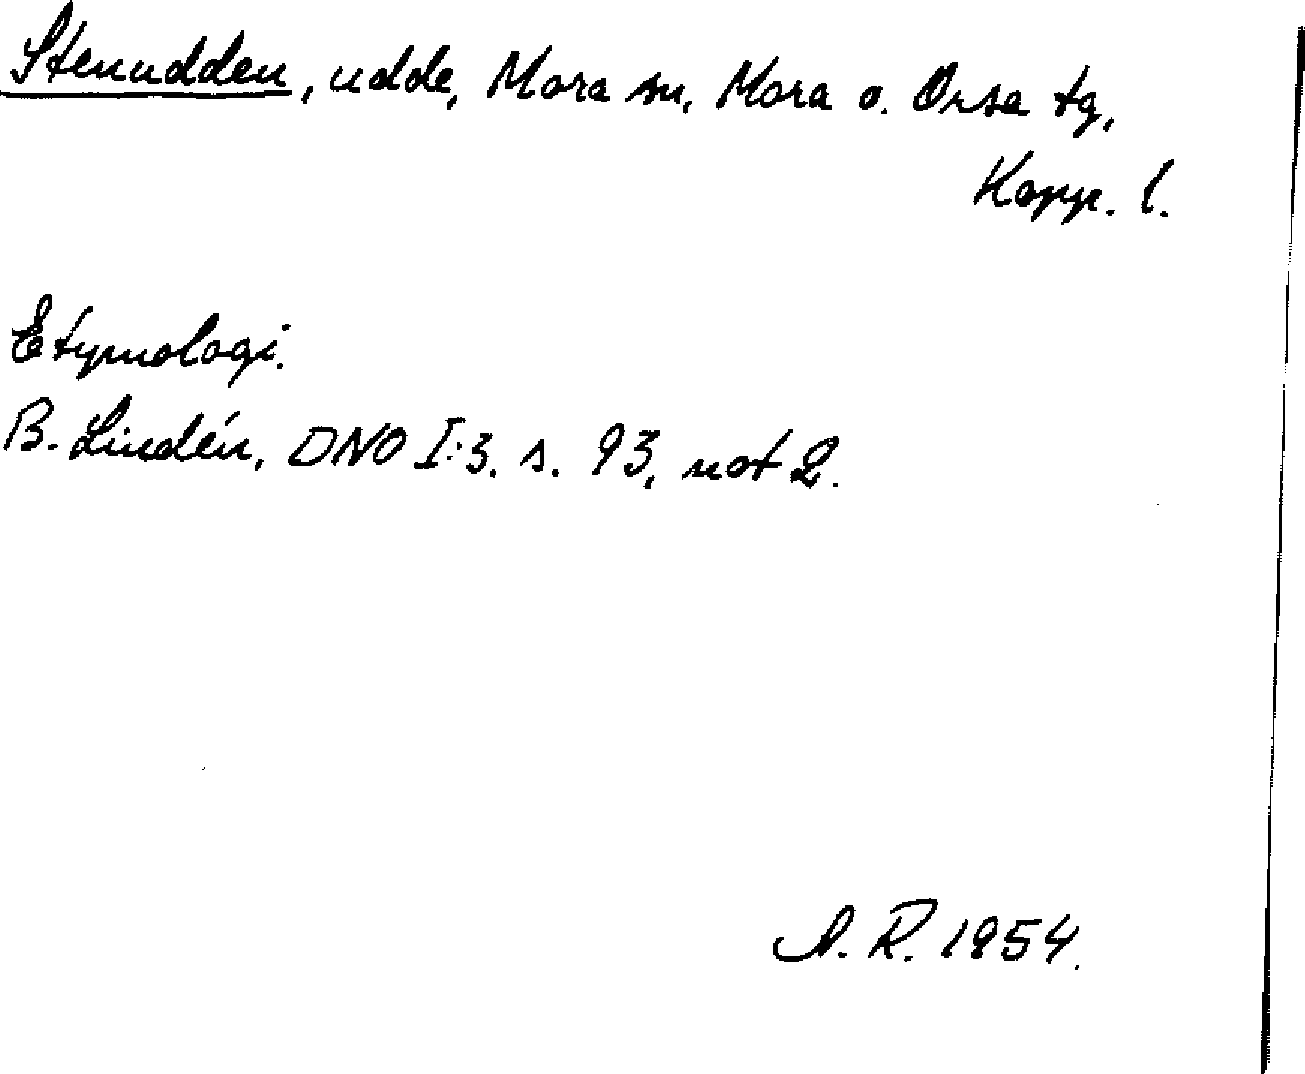 Stenudden, udde, Mora sn, Mora o. Orsa tg,
Kopp. l.
Etymologi.
B. Lindén, DNO I:3. s. 93, not 2.
A. R. 1954.